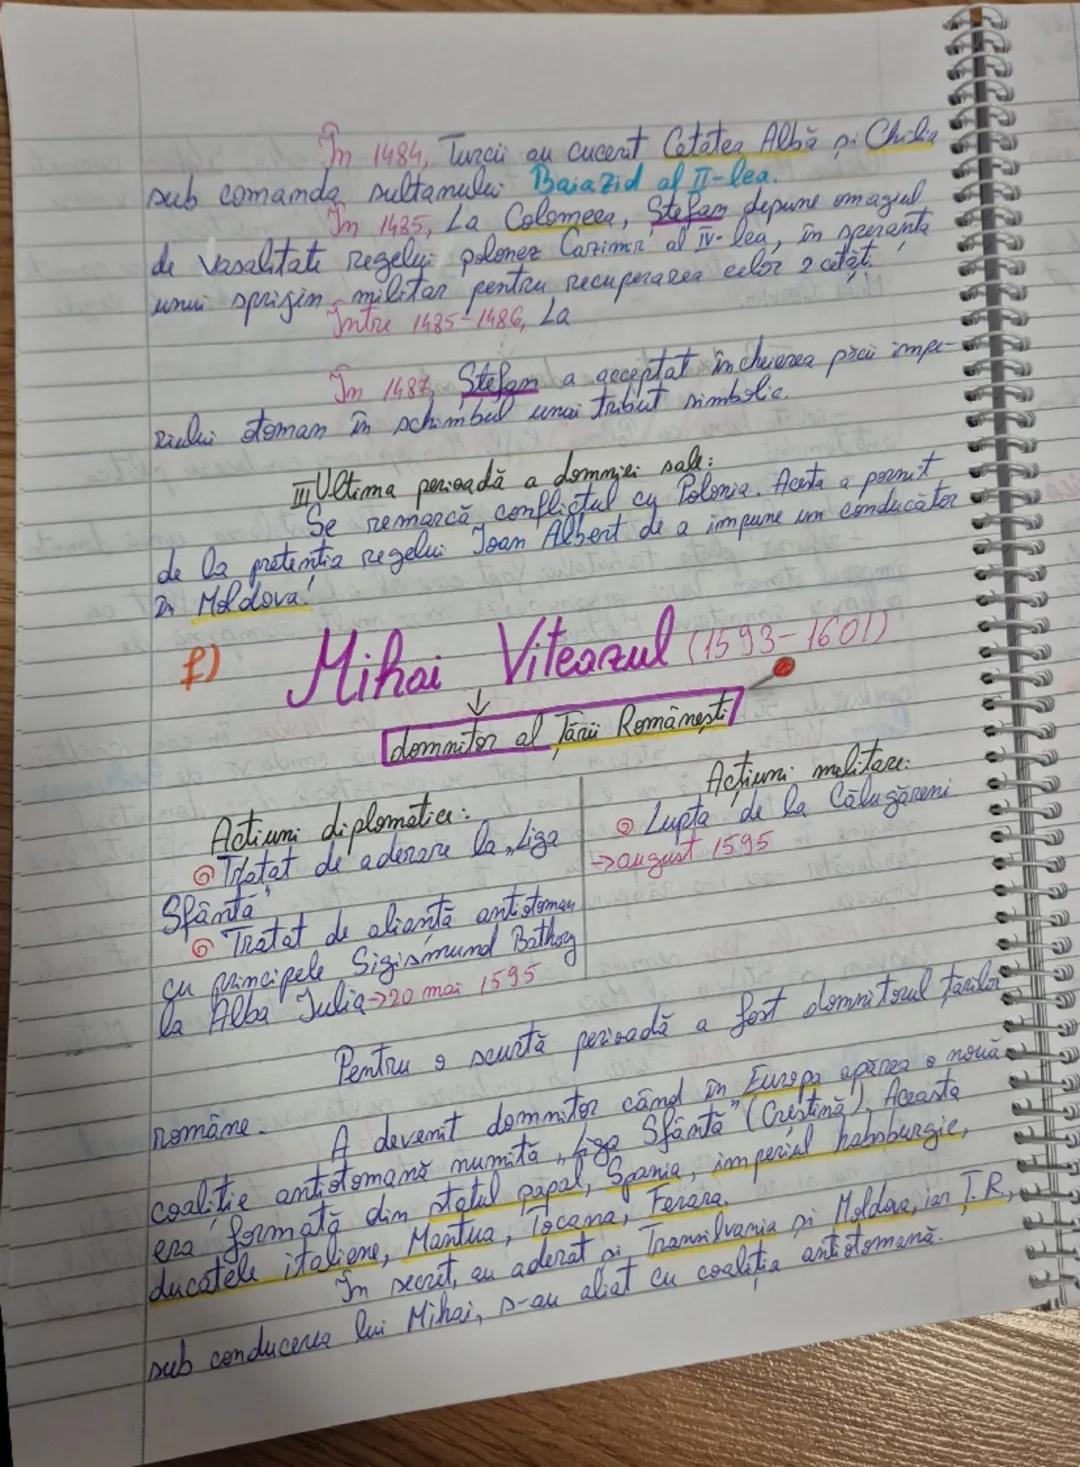 În 1484, Turcii au cucerit Cetatea Albă și Chilia
sub comanda sultanului Baiazid al II-lea.
În 1485, La Colomeea, Ștefan depune omagiul
de vasalitate regelui polonez Cazimir al IV-lea, în speranța
unui sprijin militar pentru recuperarea celor 2 cetăț.
Între 1485-1486, La
În 1487, Ștefan a acceptat încheierea păcii impe-
riului otoman în schimbul unui tribut simbolic.
III Ultima perioadă a domniei sale:
Se remarcă conflictul cu Polonia. Acesta a pornit
de la pretenția regelui Ioan Albert de a impune un conducător
în Moldova!
f) Mihai Viteazul (1593-1601)
↓
domnitor al Țării Românești
Acțiuni diplomatice:
Tratat de aderare la „Liga
Sfântă"
Tratat de alianță antiotoman
cu principele Sigismund Bathory
la Alba Iulia→20 mai 1595
Acțiuni militare:
Lupta de la Călugăreni
→august 1595
Pentru o scurtă perioadă a fost domnitorul țărilor
române.
A devenit domnitor când în Europa apărea o nouă
coaliție antiotomană numită „Liga Sfântă" (Creștină). Aceasta
era formată din statul papal, Spania, imperiul habsburgic,
ducatele italiene, Mantua, Tocana, Ferara.
În secret, au aderat și Transilvania și Moldova, iar Ț.R.,
sub conducerea lui Mihai, s-au aliat cu coaliția antiotomană.